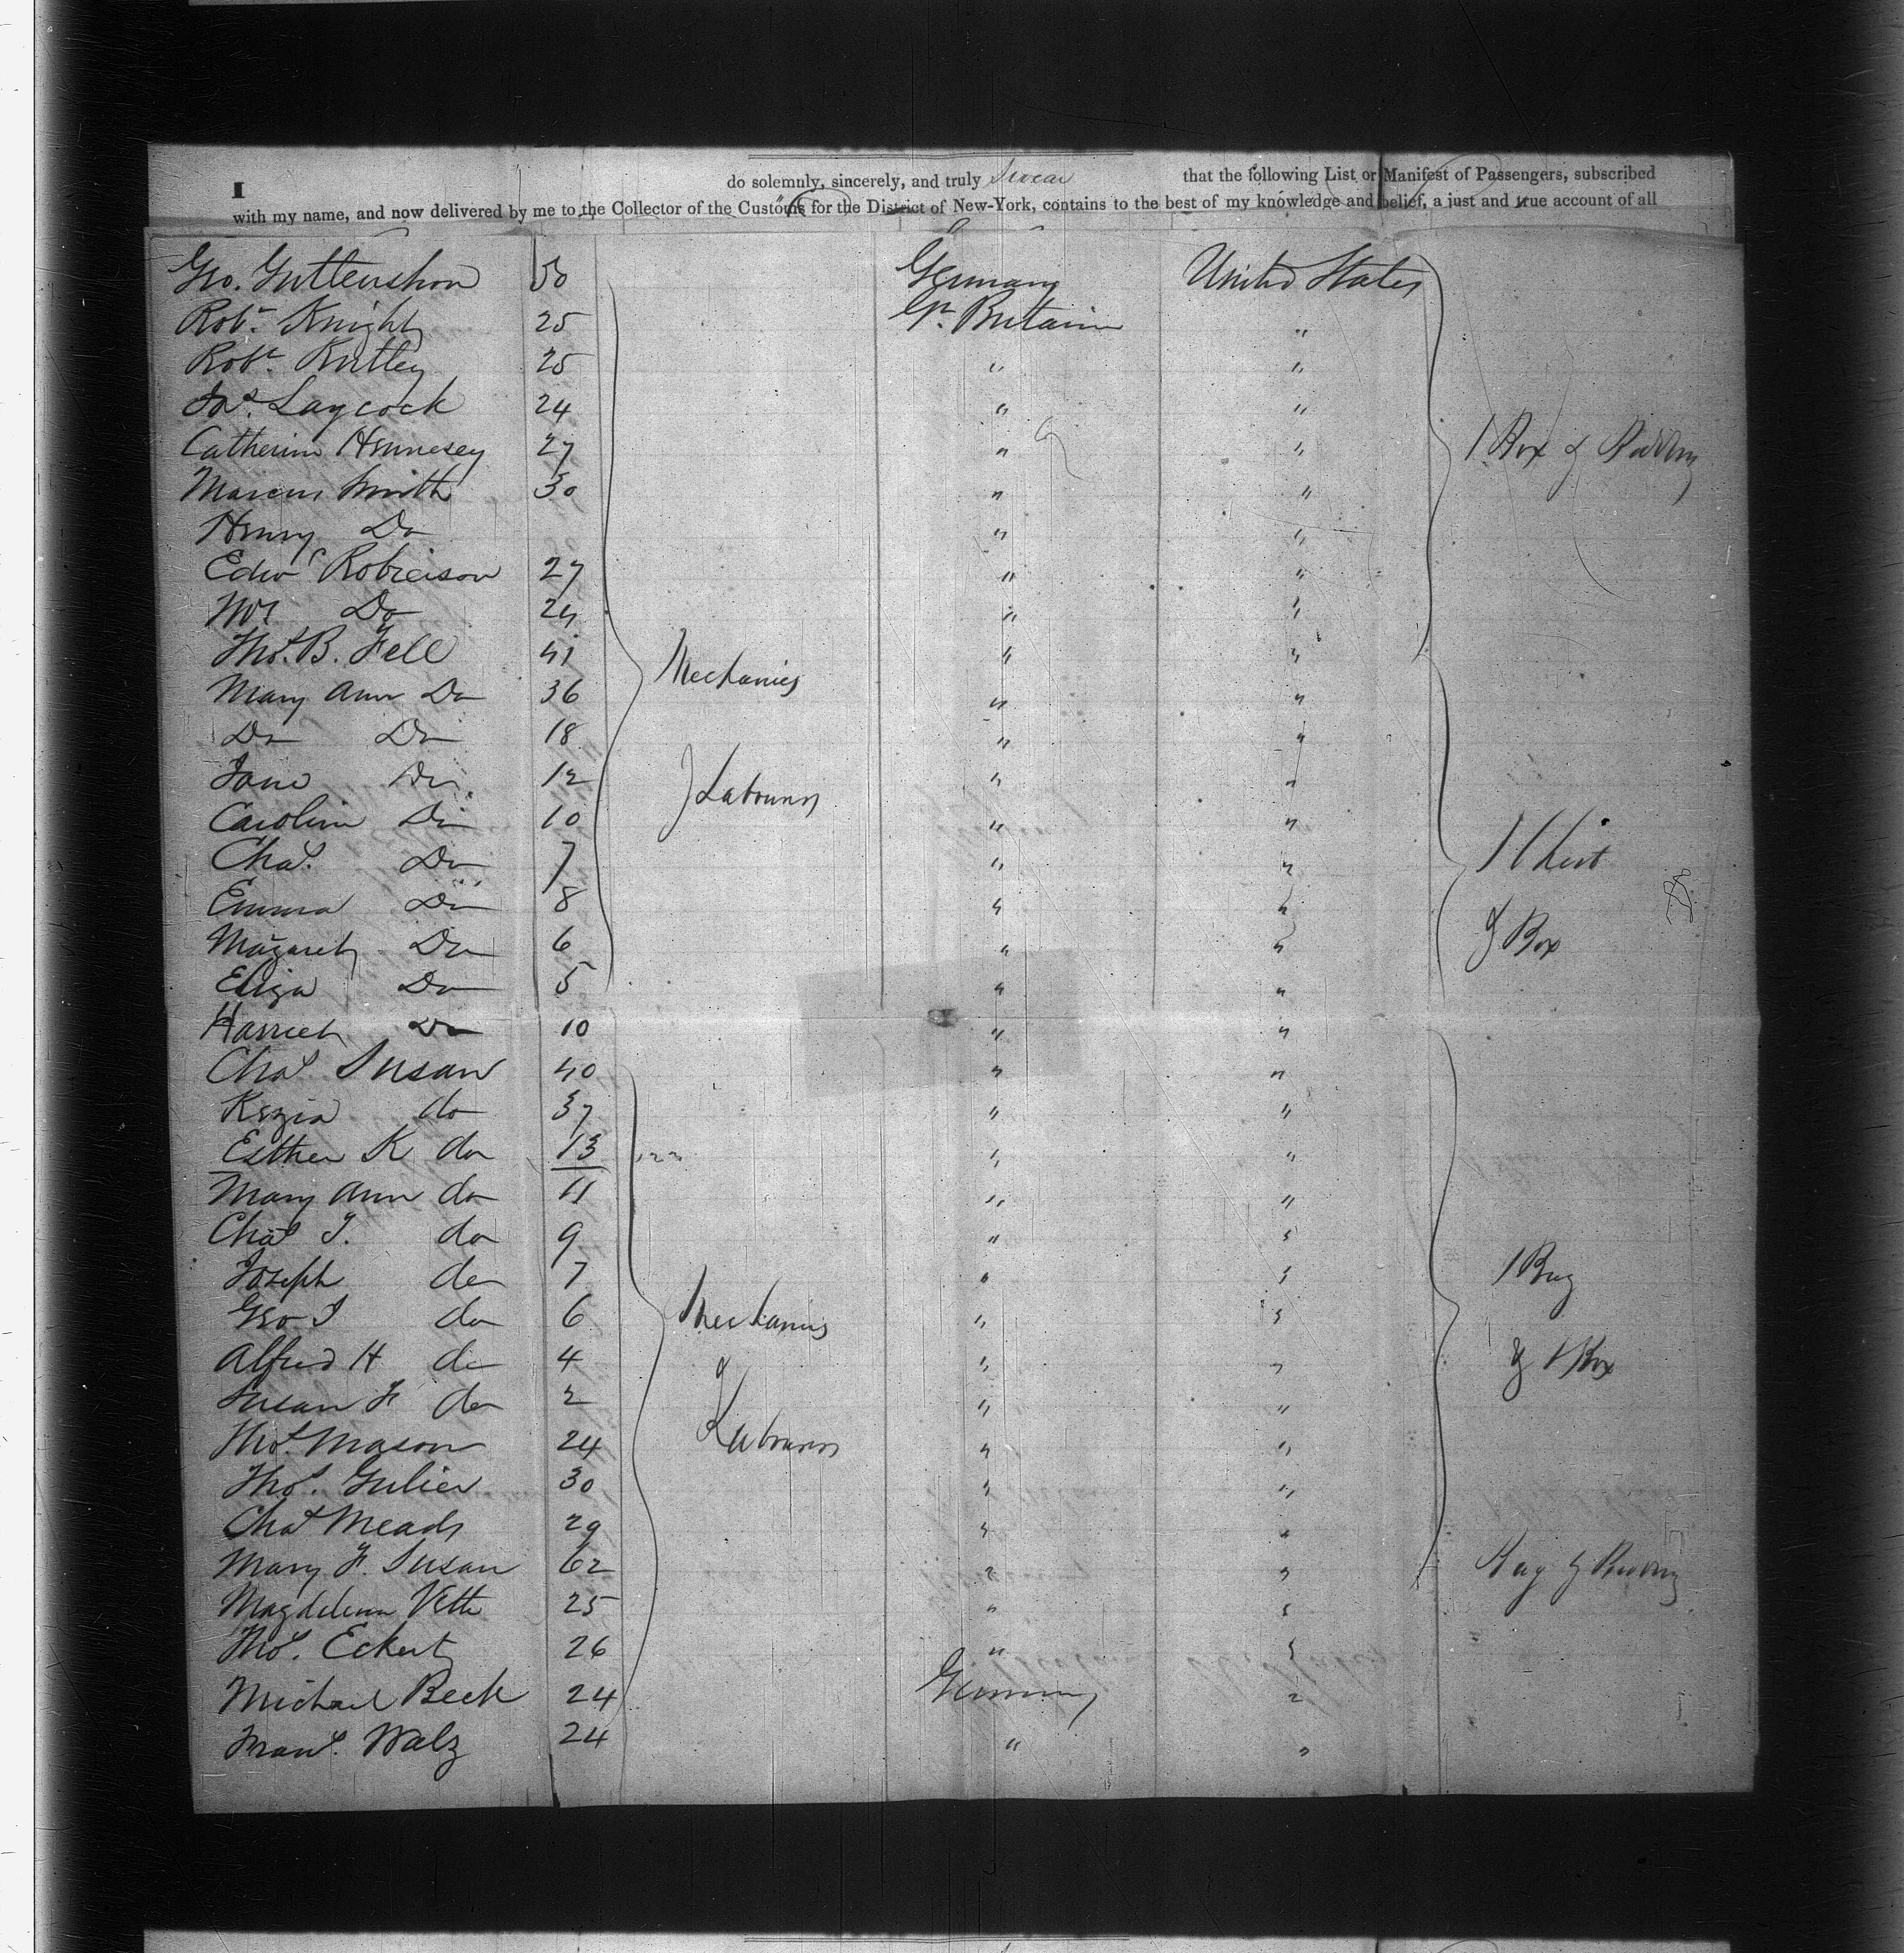 I do solemnly, sincerely, and truly Swear that the following List or Manifest of Passengers, subscribed
with my name, and now delivered by me to the Collector of the Customs for the District of New-York, contains to the best of my knowledge and belief, a just and true account of all
Geo. Guttenshon 50 Germany United States
Robt. Knight 25 Gt. Britain "
Robt. Rutley 25 " "
Jas. Laycock 24 " "
Catherine Hennesey 27 " " 1 Box & Bedding
Marcus Smith 30 " "
Henry Do " "
Edwd Robieison 27 " "
Do 24 " "
Thos. B. Fell 41 " "
Mary Ann Do 36 Mechanics " "
Do Do 18 " "
Jane Do 12 " "
& Labourers
Caroline Do 10 " "
Chas. Do 7 " " 1 Chest
Emma Do 8 " "
Magaret Do 6 " " & Box
Eliza Do 5 " "
Harriet Do 10 " "
Chas Susan 40 " "
Kezia do 37 " "
Esther K do 13 " "
Mary Ann do 11 " "
Chas T. do 9 " "
Joseph do 7 " " 1 Bag
Geo I do 6 Mechanics " "
Alfred H do 4 & " " & 1 Box
Susan F do 2 " "
Thos. Mason 24 Labourers " "
Thos. Gulier 30 " "
Chas Meads 29 " "
Mary F. Susan 62 " " Bag & Bedding
Magdelena Vette 25 " "
Thos. Eckert 26 " "
Michael Beck 24 Germany "
Walz 24 " "